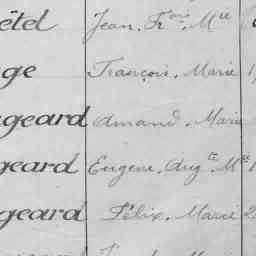 êtel Jean, Fr.ois, M.ie
ge François, Marie 1
geard Amand, Marie
geard Eugene, Aug.te M.ie 1
geard Félix, Marie 2